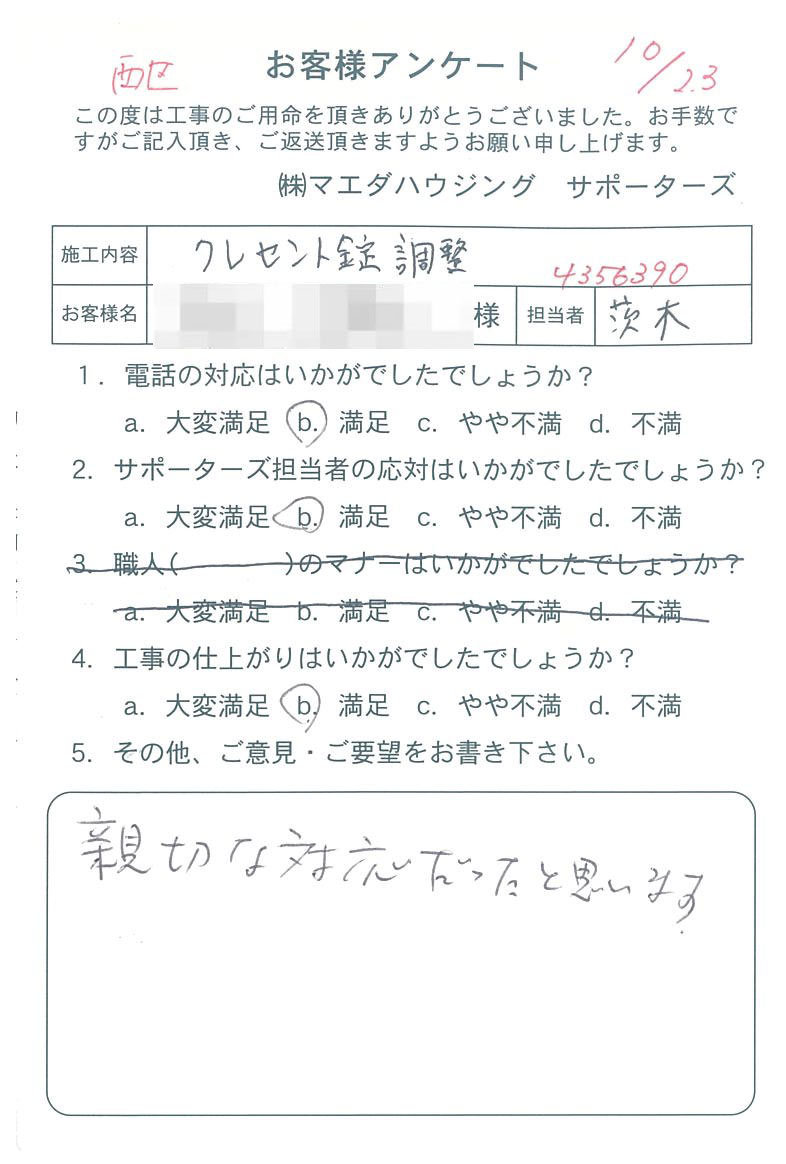 西区 お客様アンケート 10/23
この度は工事のご用命を頂きありがとうございました。お手数で
すがご記入頂き、ご返送頂きますようお願い申し上げます。
㈱マエダハウジング サポーターズ
施工内容 クレセント錠調整
4356390
お客様名 様 担当者 茨木
1. 電話の対応はいかがでしたでしょうか？
a. 大変満足 b. 満足 c. やや不満 d. 不満
2. サポーターズ担当者の応対はいかがでしたでしょうか？
a. 大変満足 b. 満足 c. やや不満 d. 不満
3. 職人( )のマナーはいかがでしたでしょうか？
a. 大変満足 b. 満足 c. やや不満 d. 不満
4. 工事の仕上がりはいかがでしたでしょうか？
a. 大変満足 b. 満足 c. やや不満 d. 不満
5. その他、ご意見・ご要望をお書き下さい。
親切な対応だったと思います